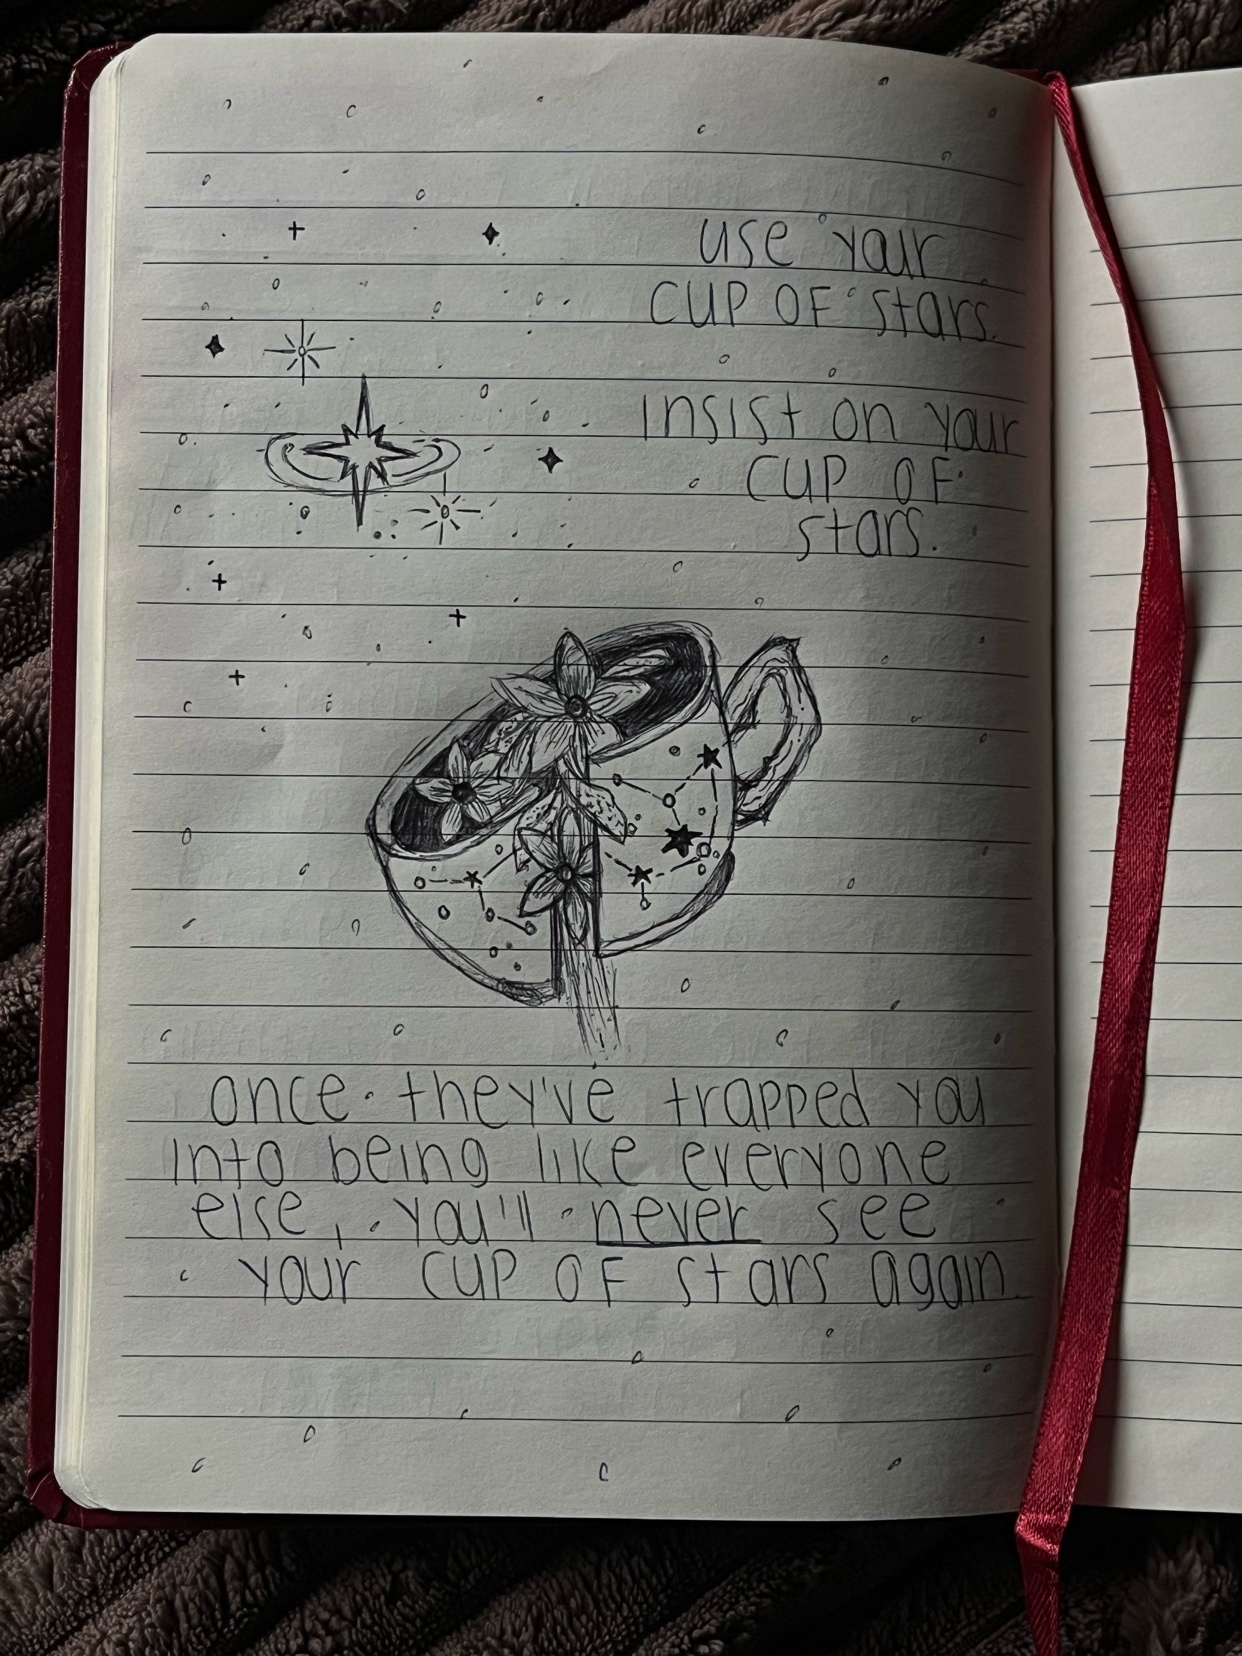 use your
CUP OF stars.
insist on your
CUP OF
stars.
once they've trapped you
into being like everyone
else, you'll never see
your CUP OF stars again.